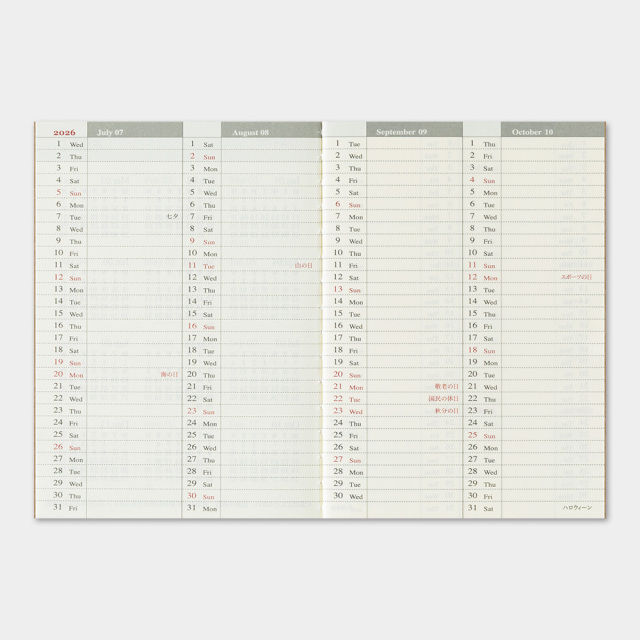 2026 July 07
1 Wed
2 Thu
3 Fri
4 Sat
5 Sun
6 Mon
7 Tue 七夕
8 Wed
9 Thu
10 Fri
11 Sat
12 Sun
13 Mon
14 Tue
15 Wed
16 Thu
17 Fri
18 Sat
19 Sun
20 Mon 海の日
21 Tue
22 Wed
23 Thu
24 Fri
25 Sat
26 Sun
27 Mon
28 Tue
29 Wed
30 Thu
31 Fri
August 08
1 Sat
2 Sun
3 Mon
4 Tue
5 Wed
6 Thu
7 Fri
8 Sat
9 Sun
10 Mon
11 Tue 山の日
12 Wed
13 Thu
14 Fri
15 Sat
16 Sun
17 Mon
18 Tue
19 Wed
20 Thu
21 Fri
22 Sat
23 Sun
24 Mon
25 Tue
26 Wed
27 Thu
28 Fri
29 Sat
30 Sun
31 Mon
September 09
1 Tue
2 Wed
3 Thu
4 Fri
5 Sat
6 Sun
7 Mon
8 Tue
9 Wed
10 Thu
11 Fri
12 Sat
13 Sun
14 Mon
15 Tue
16 Wed
17 Thu
18 Fri
19 Sat
20 Sun
21 Mon 敬老の日
22 Tue 国民の休日
23 Wed 秋分の日
24 Thu
25 Fri
26 Sat
27 Sun
28 Mon
29 Tue
30 Wed
October 10
1 Thu
2 Fri
3 Sat
4 Sun
5 Mon
6 Tue
7 Wed
8 Thu
9 Fri
10 Sat
11 Sun
12 Mon スポーツの日
13 Tue
14 Wed
15 Thu
16 Fri
17 Sat
18 Sun
19 Mon
20 Tue
21 Wed
22 Thu
23 Fri
24 Sat
25 Sun
26 Mon
27 Tue
28 Wed
29 Thu
30 Fri
31 Sat ハロウィーン